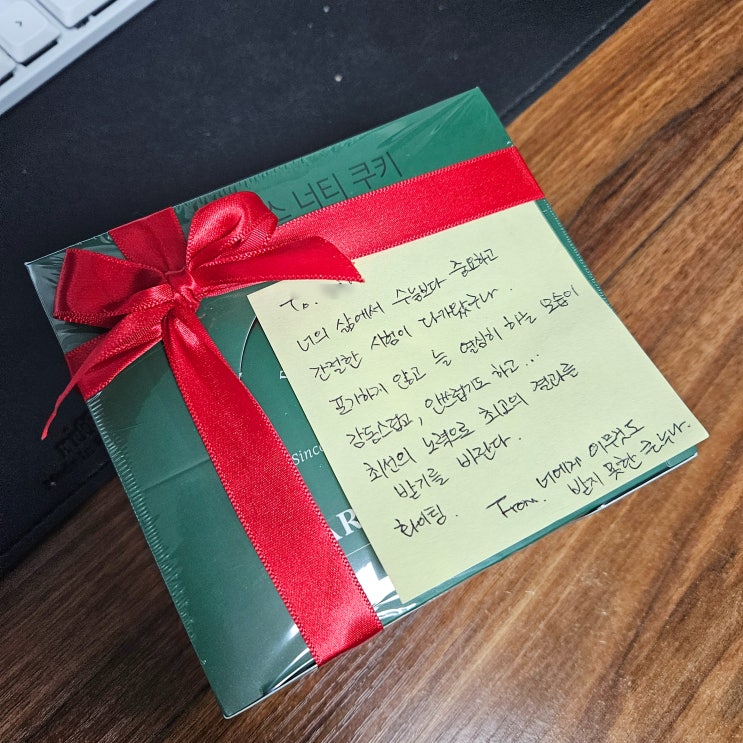 스 너티 쿠키
To.
너의 삶에서 수능보다 중요하고
간절한 시험이 다가왔구나.
포기하지 않고 늘 열심히 하는 모습이
감동스럽고, 안쓰럽기도 하고...
최선의 노력으로 최고의 결과를
받기를 바란다.
화이팅.
From. 너에게 아무것도
받지 못한 큰누나.
Since
AR